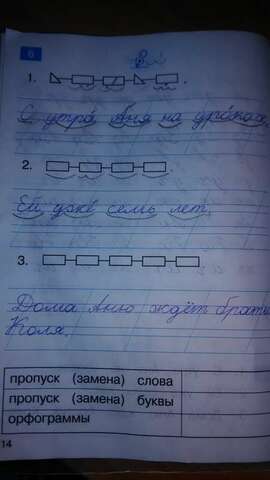 6
1.
С утра Аня на уроках.
2.
Ей уже семь лет.
3.
Дома Аню ждёт братик
Коля.
пропуск (замена) слова
пропуск (замена) буквы
орфограммы
14